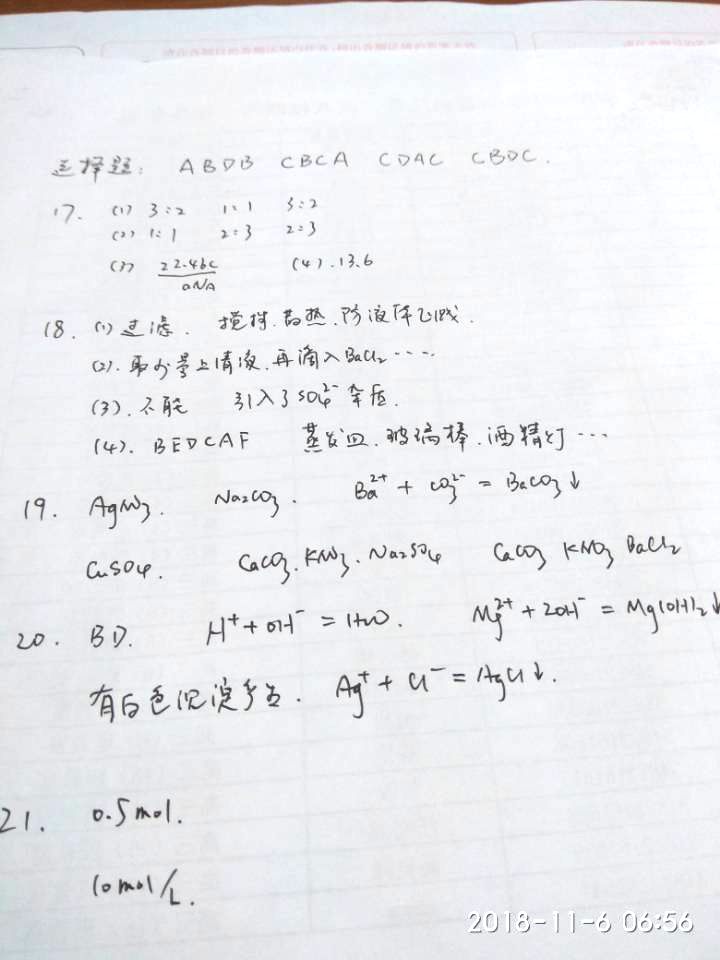 选择题: ABDB CBCA CDAC CBDC.
17. (1) 3:2 1:1 3:2
(2) 1:1 2:3 2:3
(3) 22.4bc/aNA (4). 13.6
18. (1) 过滤. 搅拌.散热.防液体飞溅.
(2). 取少量上清液.再滴入BaCl₂……
(3). 不能 引入了SO₄²⁻杂质.
(4). BEDCAF 蒸发皿.玻璃棒.酒精灯…
19. AgNO₃. Na₂CO₃. Ba²⁺ + CO₃²⁻ = BaCO₃↓
CuSO₄. CaCO₃.KNO₃.Na₂SO₄ CaCO₃ KNO₃ BaCl₂
20. BD. H⁺+OH⁻=H₂O. Mg²⁺+2OH⁻=Mg(OH)₂↓
有白色沉淀产生. Ag⁺+Cl⁻=AgCl↓.
21. 0.5mol.
10mol/L.
2018-11-6 06:56